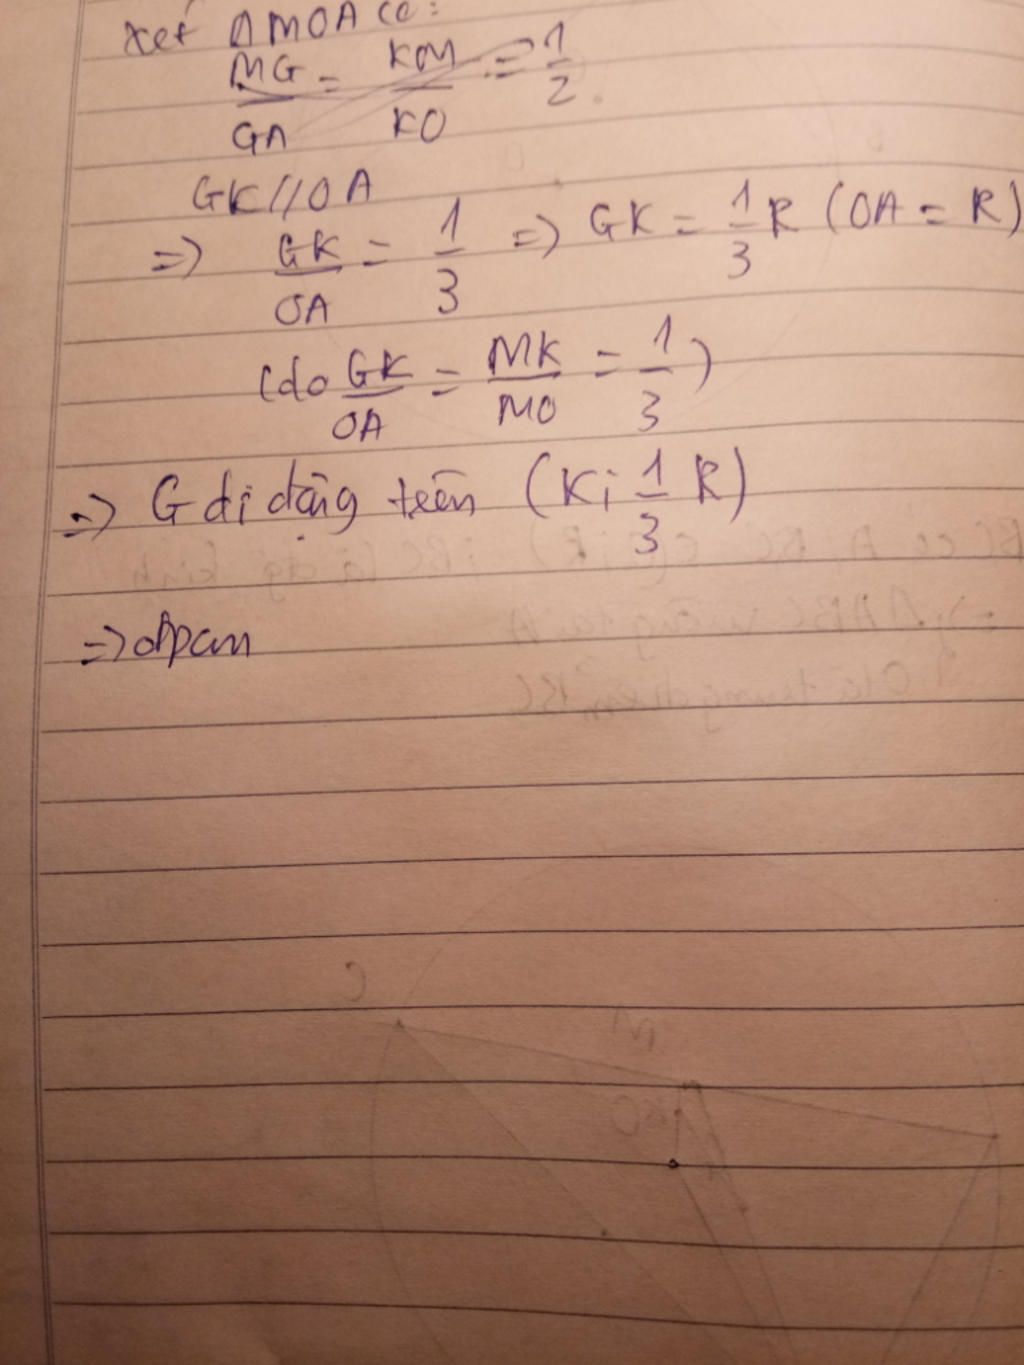 Xét ΔMOA có:
MG/GA = KM/KO = 1/2.
GK//OA
=> GK/OA = 1/3 => GK = 1/3 R (OA = R)
(do GK/OA = MK/MO = 1/3)
=> G di động trên (K; 1/3 R)
=> đpcm